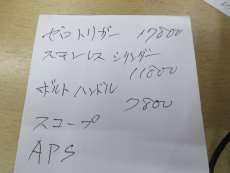 ゼロトリガー 17800
ステンレスシリンダー
11800
ボルトハンドル
7800
スコープ
APS